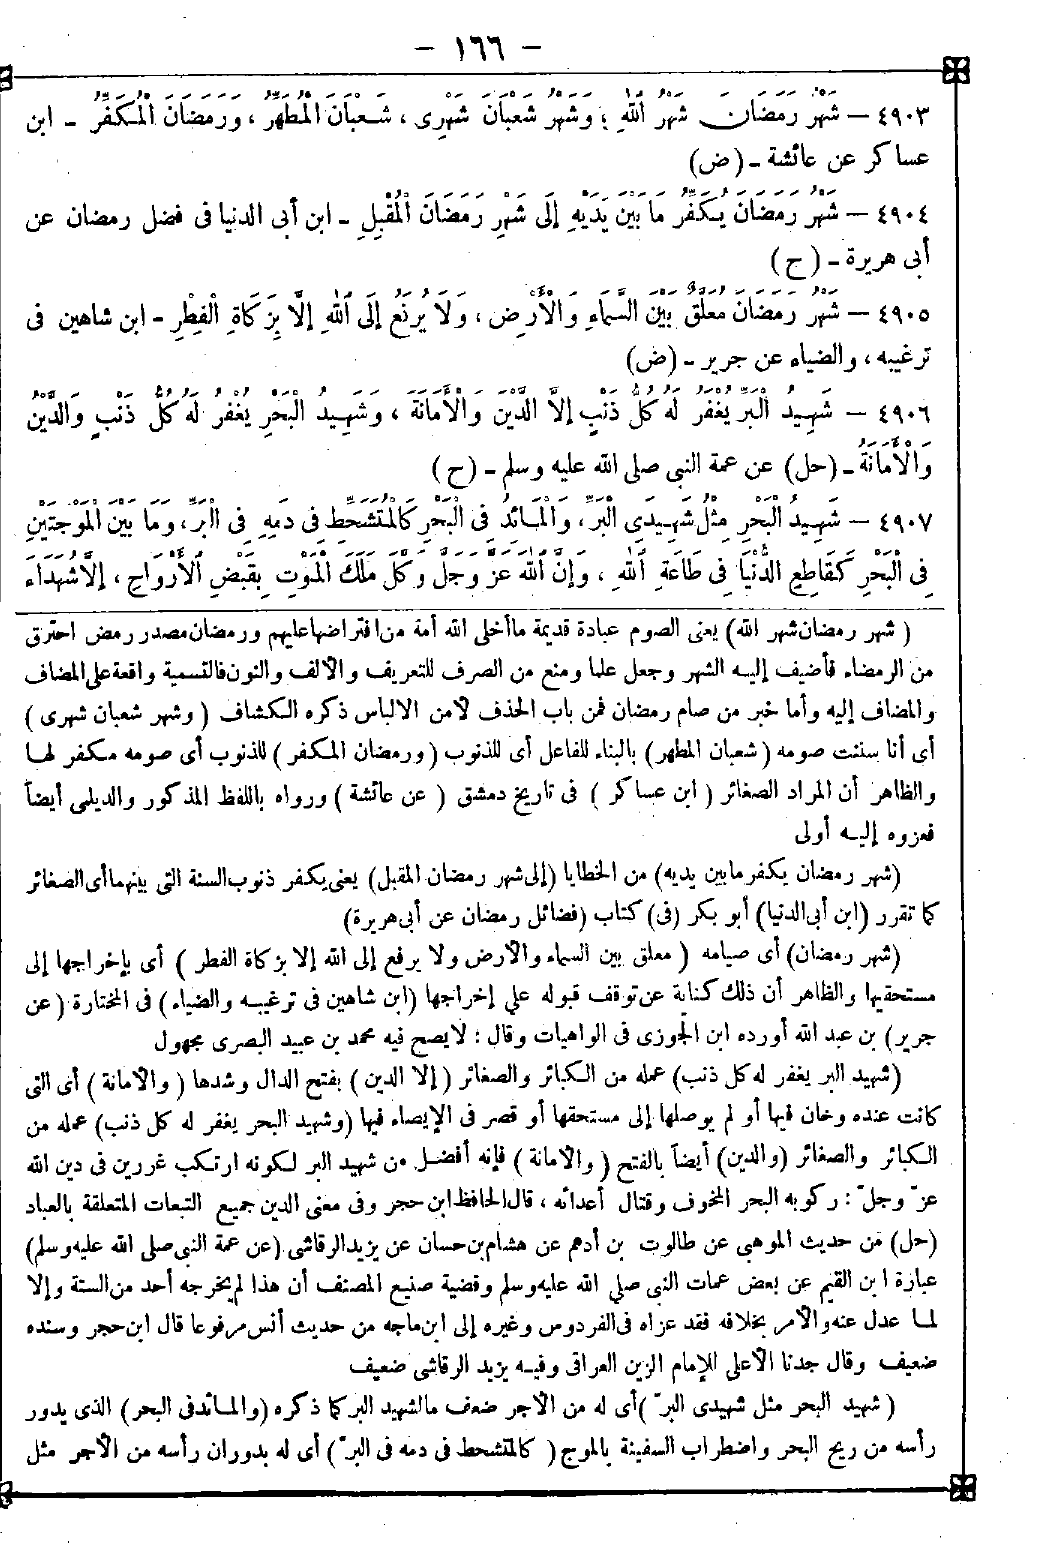 – ١٦٦ –
٤٩٠٣ – شَهْرُ رَمَضَانَ شَهْرُ اللهِ؛ وَشَهْرُ شَعْبَانَ شَهْرِى، شَعْبَانُ الْمُطَهِّرُ، وَرَمَضَانُ الْمُكَفِّرُ – ابن
عساكر عن عائشة – (ض)
٤٩٠٤ – شَهْرُ رَمَضَانَ يُكَفِّرُ مَا بَيْنَ يَدَيْهِ إِلَى شَهْرِ رَمَضَانَ الْمُقْبِلِ – ابن أبى الدنيا فى فضل رمضان عن
أبى هريرة – (ح)
٤٩٠٥ – شَهْرُ رَمَضَانَ مُعَلَّقٌ بَيْنَ السَّمَاءِ وَالْأَرْضِ، وَلَا يُرْفَعُ إِلَى اللهِ إِلَّا بِزَكَاةِ الْفِطْرِ – ابن شاهين فى
ترغيبه، والضياء عن جرير – (ض)
٤٩٠٦ – شَهِيدُ الْبَرِّ يُغْفَرُ لَهُ كُلُّ ذَنْبٍ إِلَّا الدَّيْنَ وَالْأَمَانَةَ، وَشَهِيدُ الْبَحْرِ يُغْفَرُ لَهُ كُلُّ ذَنْبٍ وَالدَّيْنُ
وَالْأَمَانَةُ – (حل) عن عمة النبى صلى الله عليه وسلم – (ح)
٤٩٠٧ – شَهِيدُ الْبَحْرِ مِثْلُ شَهِيدَىِ الْبَرِّ، وَالْمَائِدُ فِى الْبَحْرِ كَالْمُتَشَحِّطِ فِى دَمِهِ فِى الْبَرِّ، وَمَا بَيْنَ الْمَوْجَتَيْنِ
فِى الْبَحْرِ كَقَاطِعِ الدُّنْيَا فِى طَاعَةِ اللهِ، وَإِنَّ اللهَ عَزَّ وَجَلَّ وَكَّلَ مَلَكَ الْمَوْتِ بِقَبْضِ الْأَرْوَاحِ، إِلَّا شُهَدَاءَ
(شهر رمضان شهر الله) يعنى الصوم عبادة قديمة ما أخلى الله أمة من افتراضها عليهم ورمضان مصدر رمض احترق
من الرمضاء فأضيف إليه الشهر وجعل علما ومنع من الصرف للتعريف والألف والنون فالتسمية واقعة على المضاف
والمضاف إليه وأما خبر من صام رمضان فمن باب الحذف لأمن الالباس ذكره الكشاف (وشهر شعبان شهرى)
أى أنا سننت صومه (شعبان المطهر) بالبناء للفاعل أى للذنوب (ورمضان المكفر) للذنوب أى صومه مكفر لها
والظاهر أن المراد الصغائر (ابن عساكر) فى تاريخ دمشق (عن عائشة) ورواه باللفظ المذكور والديلمى أيضاً
فعزوه إليه أولى
(شهر رمضان يكفر ما بين يديه) من الخطايا (إلى شهر رمضان المقبل) يعنى يكفر ذنوب السنة التى بينهما أى الصغائر
كما تقرر (ابن أبى الدنيا) أبو بكر (فى) كتاب (فضائل رمضان عن أبى هريرة)
(شهر رمضان) أى صيامه (معلق بين السماء والأرض ولا يرفع إلى الله إلا بزكاة الفطر) أى بإخراجها إلى
مستحقيها والظاهر أن ذلك كناية عن توقف قبوله على إخراجها (ابن شاهين فى ترغيبه والضياء) فى المختارة (عن
جرير) بن عبد الله أورده ابن الجوزى فى الواهيات وقال: لا يصح فيه محمد بن عبيد البصرى مجهول
(شهيد البر يغفر له كل ذنب) عمله من الكبائر والصغائر (إلا الدين) بفتح الدال وشدها (والأمانة) أى التى
كانت عنده وخان فيها أو لم يوصلها إلى مستحقها أو قصر فى الإيصاء فيها (وشهيد البحر يغفر له كل ذنب) عمله من
الكبائر والصغائر (والدين) أيضاً بالفتح (والأمانة) فإنه أفضل من شهيد البر لكونه ارتكب غررين فى دين الله
عزّ وجلّ: ركوبه البحر المخوف وقتال أعدائه، قال الحافظ ابن حجر وفى معنى الدين جميع التبعات المتعلقة بالعباد
(حل) من حديث الموهبى عن طالوت بن أدهم عن هشام بن حسان عن يزيد الرقاشى (عن عمة النبى صلى الله عليه وسلم)
عبارة ابن القيم عن بعض عمات النبى صلى الله عليه وسلم وقضية صنيع المصنف أن هذا لم يخرجه أحد من الستة وإلا
لما عدل عنه والأمر بخلافه فقد عزاه فى الفردوس وغيره إلى ابن ماجه من حديث أنس مرفوعا قال ابن حجر وسنده
ضعيف وقال جدنا الأعلى للإمام الزين العراقى وفيه يزيد الرقاشى ضعيف
(شهيد البحر مثل شهيدى البرّ) أى له من الأجر ضعف ما لشهيد البر كما ذكره (والمائد فى البحر) الذى يدور
رأسه من ريح البحر واضطراب السفينة بالموج (كالمتشحط فى دمه فى البرّ) أى له بدوران رأسه من الأجر مثل